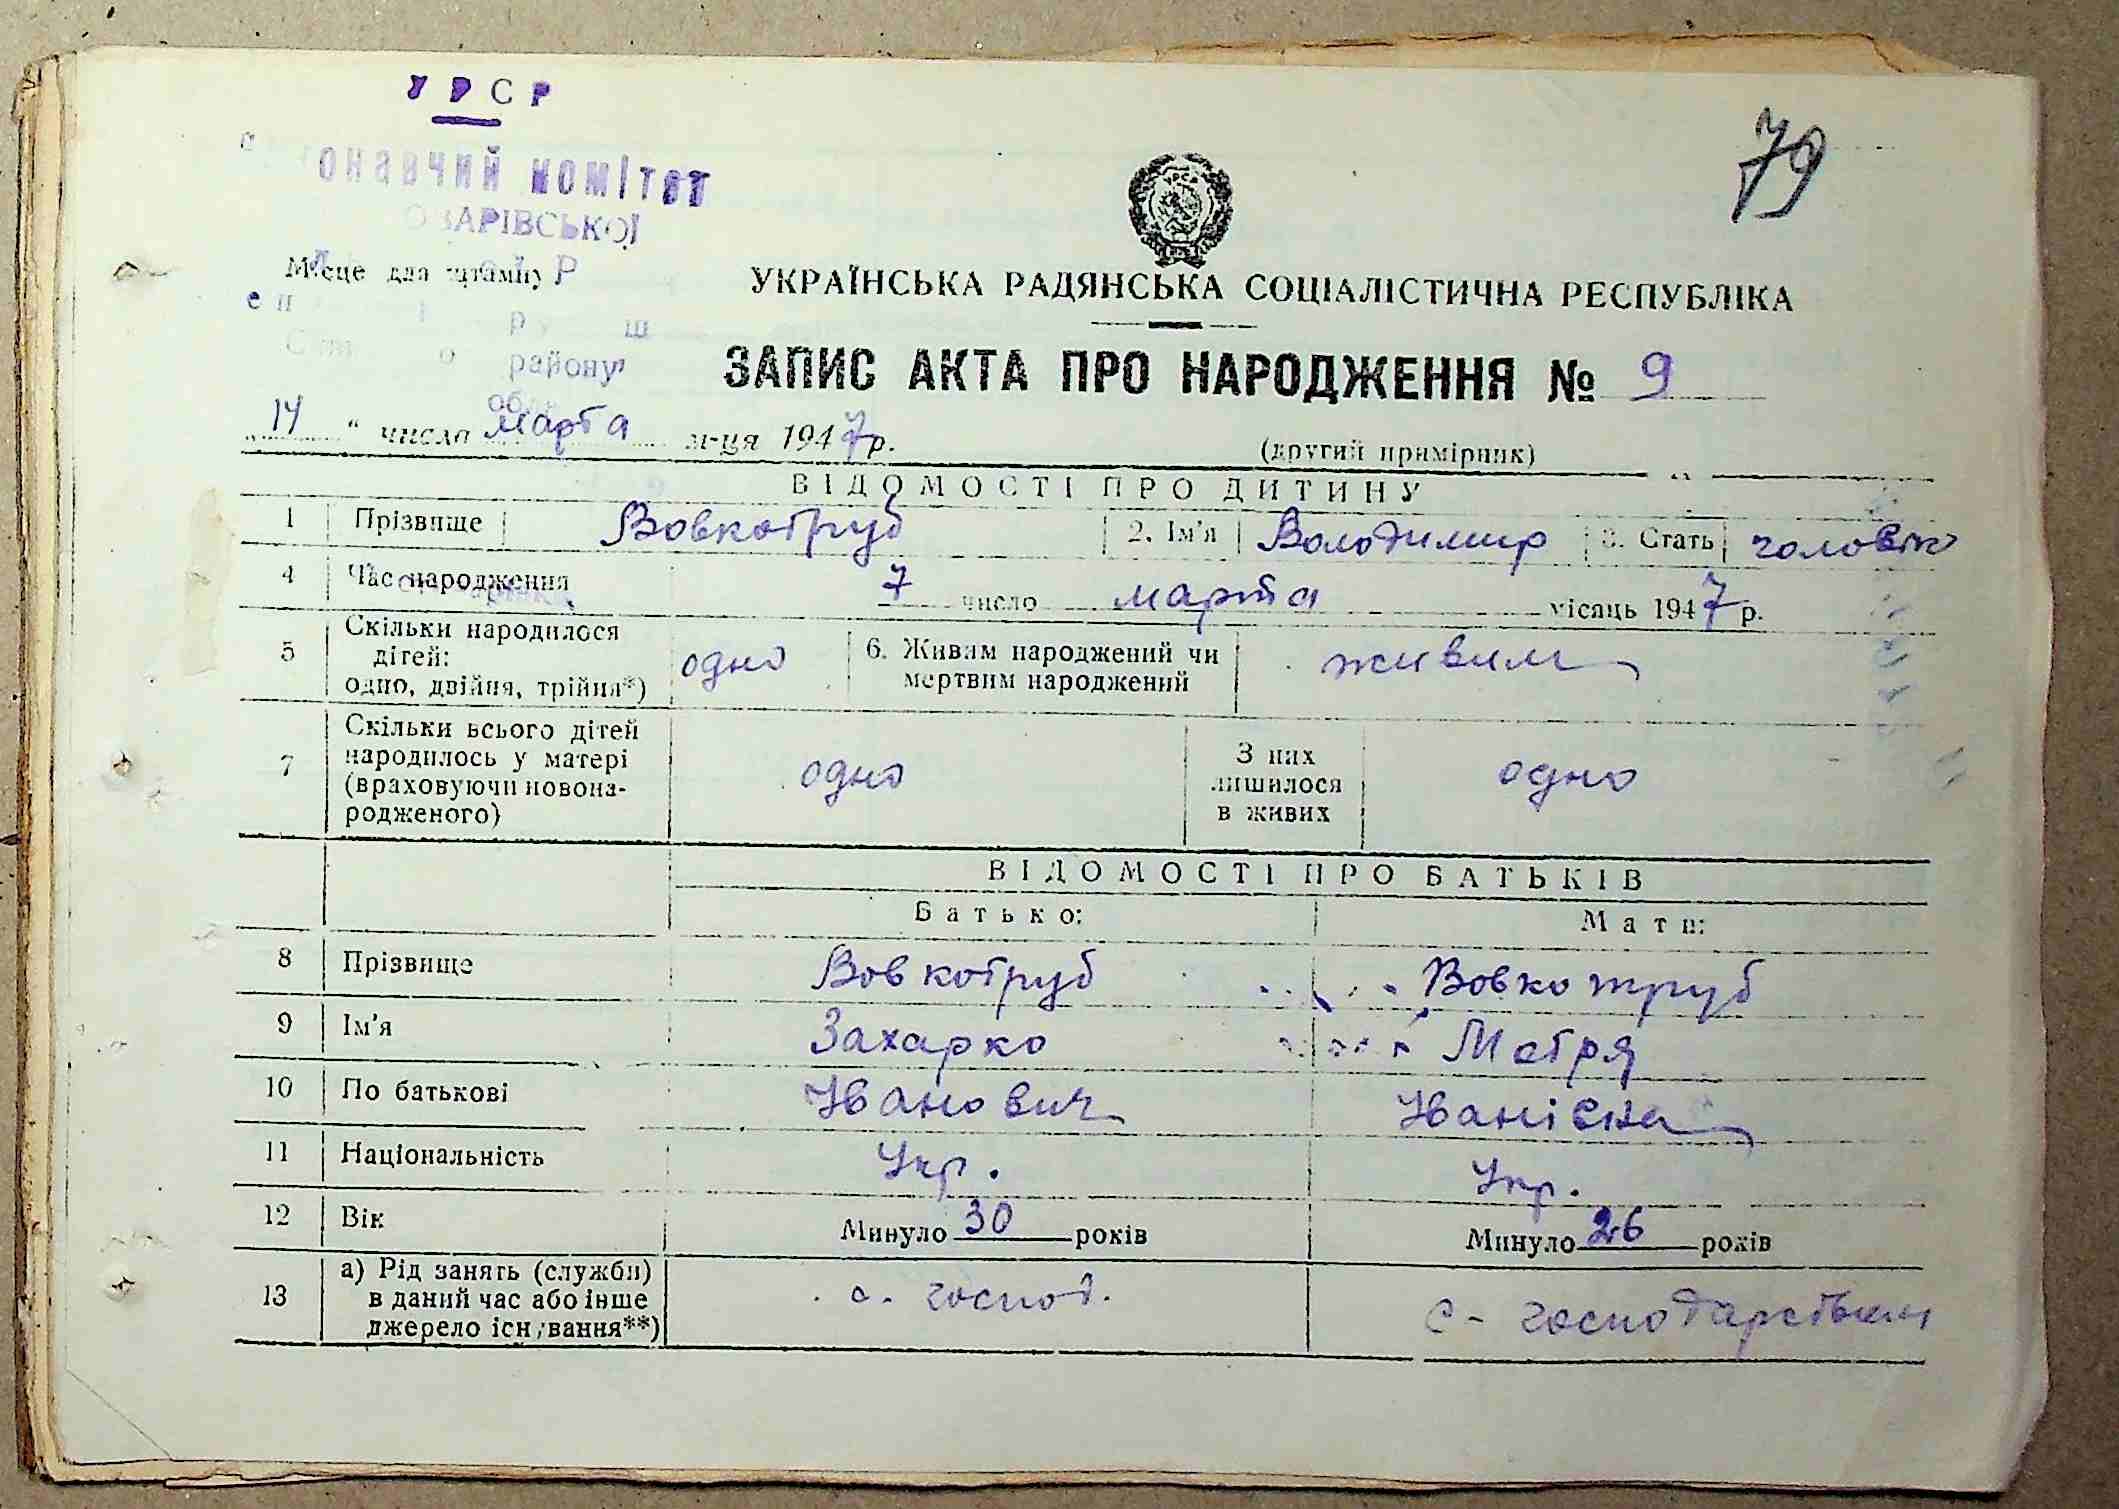 УРСР
79
комітет
Місце для штампу
УКРАЇНСЬКА РАДЯНСЬКА СОЦІАЛІСТИЧНА РЕСПУБЛІКА
району
ЗАПИС АКТА ПРО НАРОДЖЕННЯ № 9
„14“ числа марта м-ця 1947 р.
(другий примірник)
ВІДОМОСТІ ПРО ДИТИНУ
1 Прізвище Вовкотруб 2. Ім'я Володимир 3. Стать чоловік
4 Час народження 7 число марта місяць 1947 р.
5 Скільки народилося дітей: одно, двійня, трійня*) одно 6. Живим народжений чи мертвим народжений живим
7 Скільки всього дітей народилось у матері (враховуючи новонародженого) одно З них лишилося в живих одно
ВІДОМОСТІ ПРО БАТЬКІВ
Батько: Мати:
8 Прізвище Вовкотруб Вовкотруб
9 Ім'я Захарко
10 По батькові Іванович Іванівна
11 Національність Укр. Укр.
12 Вік Минуло 30 років Минуло 26 років
13 а) Рід занять (служби) в даний час або інше джерело існування**) с-господ. с-господарствим